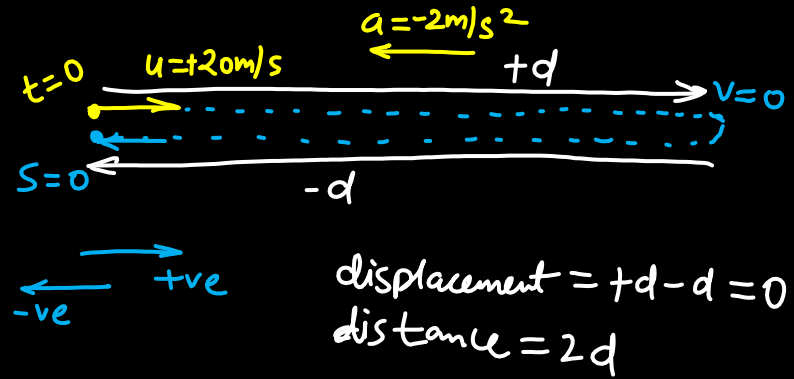 a=-2m/s²
t=0 u=+20m/s +d v=0
s=0 -d
+ve
-ve
displacement = +d-d=0
distance=2d